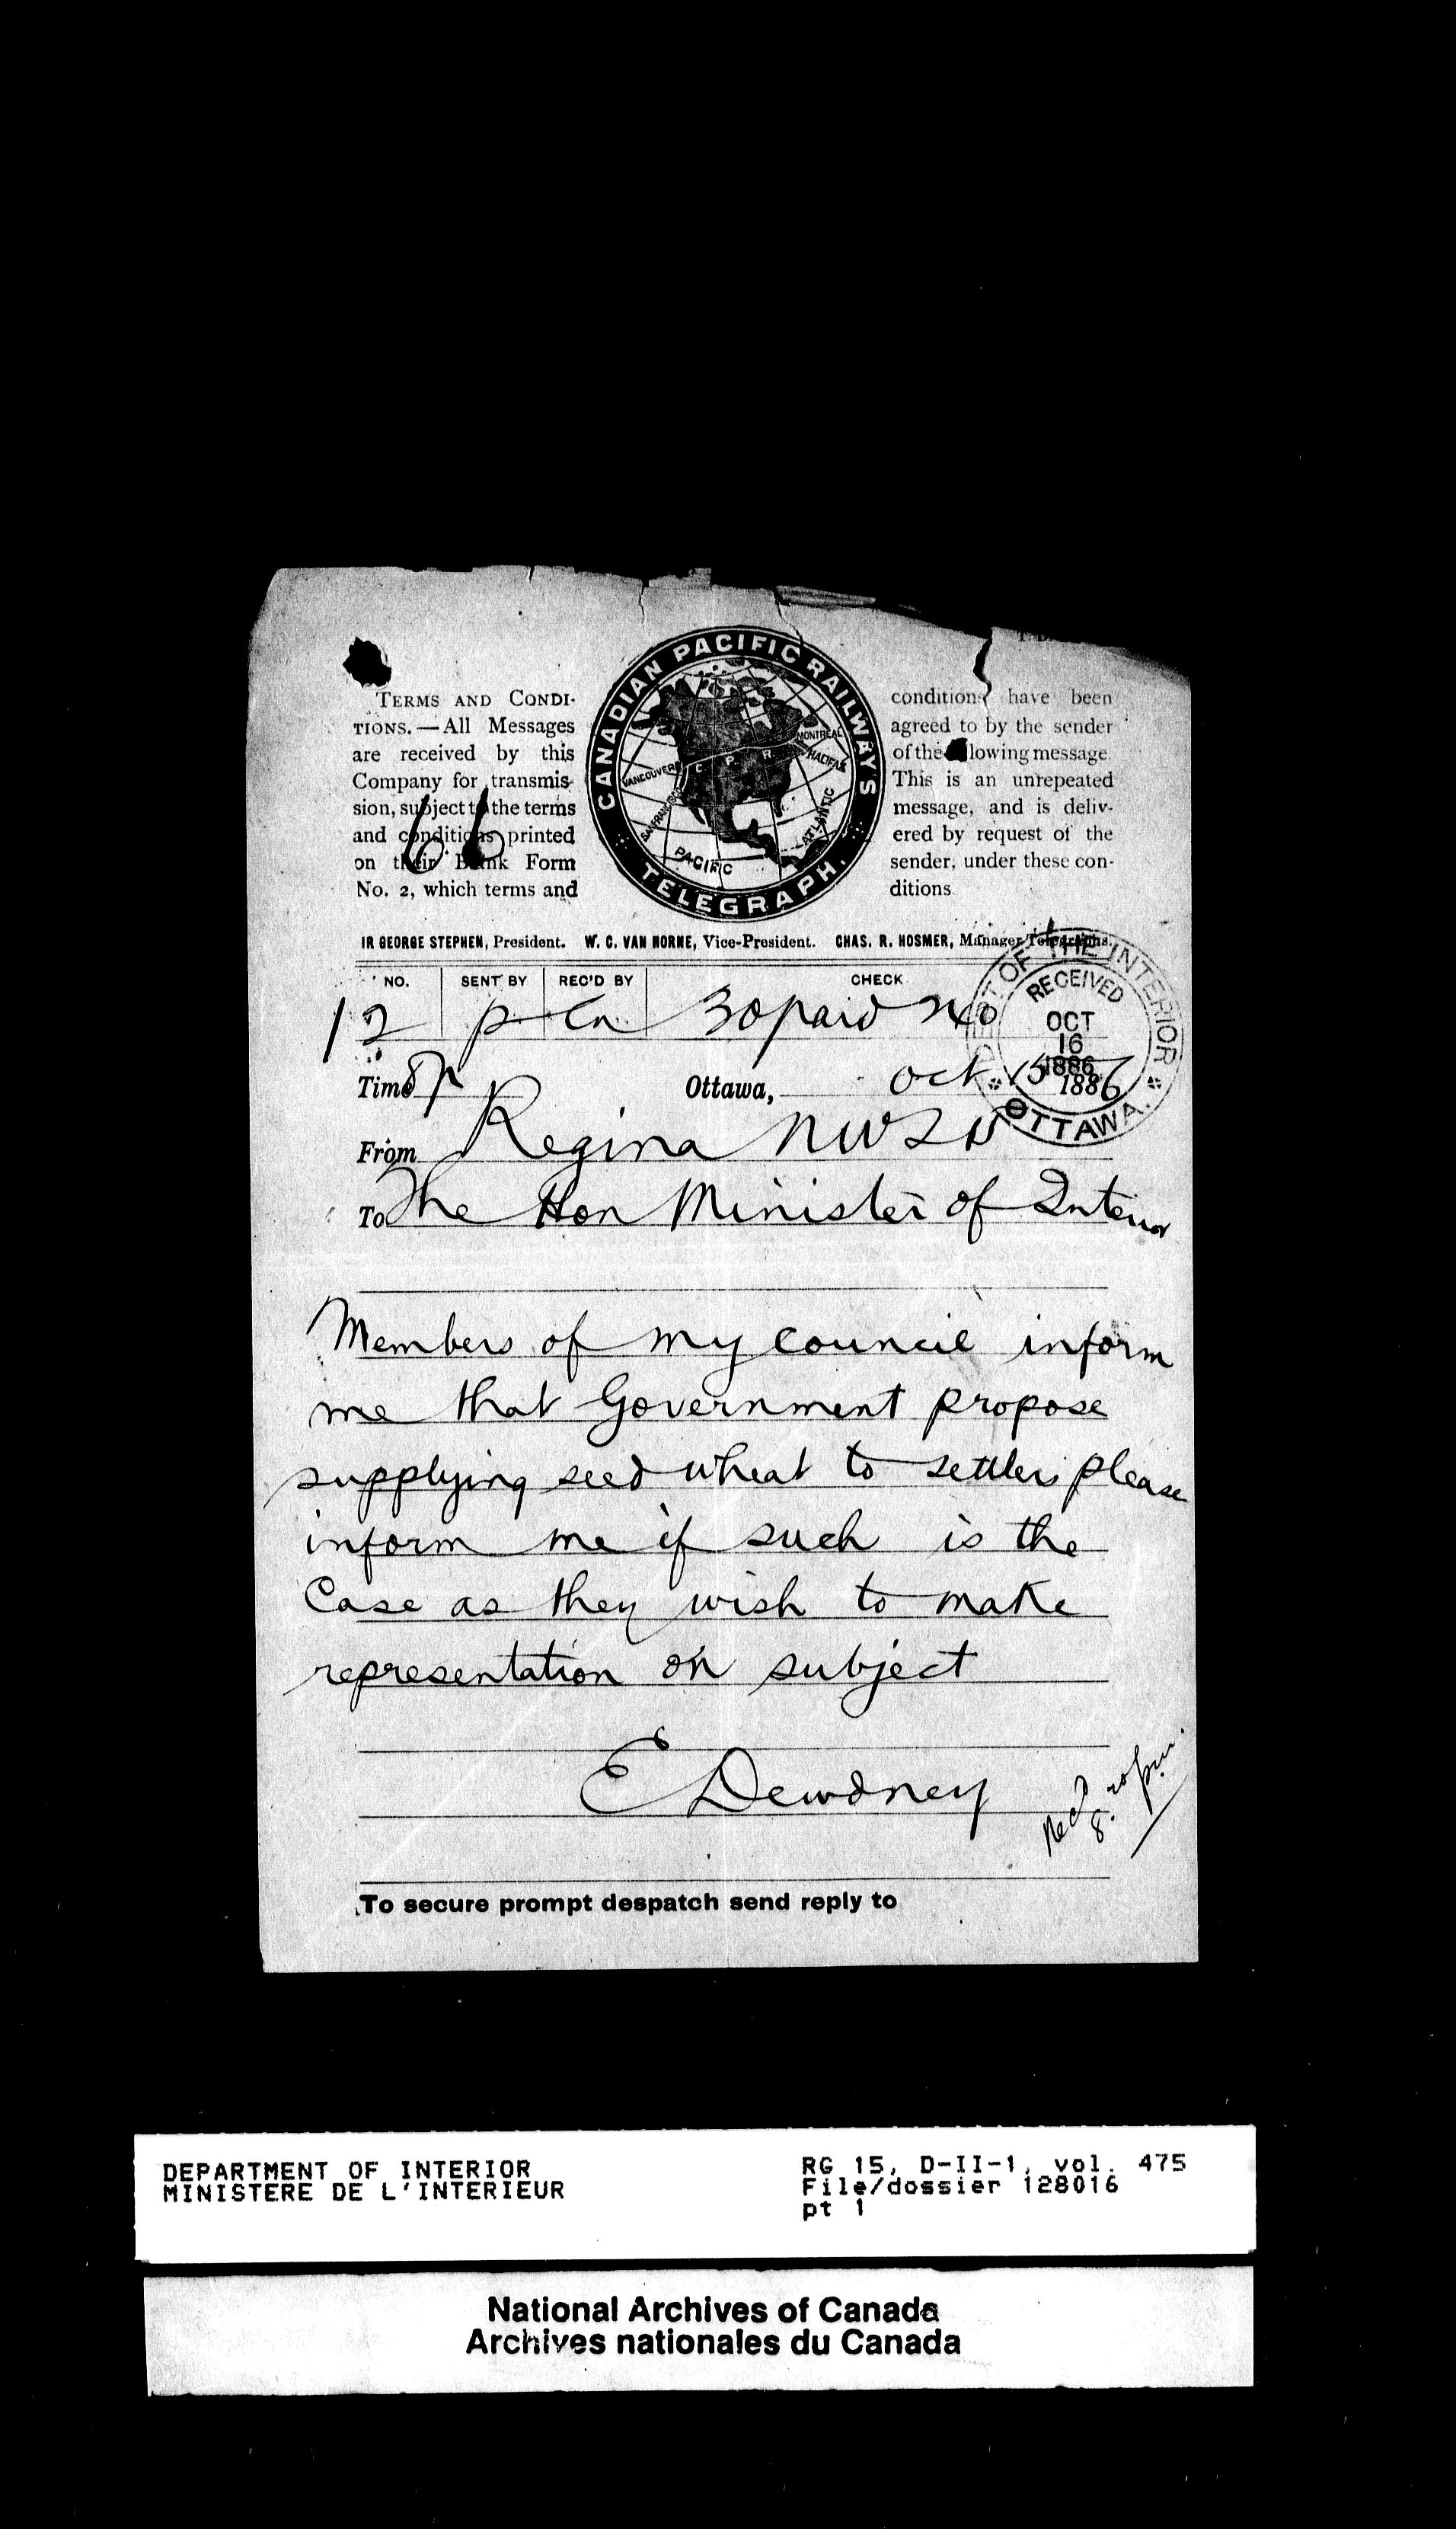 CANADIAN PACIFIC RAILWAY'S
TELEGRAPH.
VANCOUVER C. P. R. MONTREAL HALIFAX
SAN FRANCISCO PACIFIC ATLANTIC
TERMS AND CONDI-
TIONS.—All Messages
are received by this
Company for transmis-
sion, subject to the terms
and conditions printed
on their Blank Form
No. 2, which terms and
66
conditions have been
agreed to by the sender
of the lowing message
This is an unrepeated
message, and is deliv-
ered by request of the
sender, under these con-
ditions.
IR GEORGE STEPHEN, President. W. C. VAN HORNE, Vice-President. CHAS. R. HOSMER, Manager Telegraphs.
NO. SENT BY REC'D BY CHECK
12 p Cn 30 paid
DEPT OF THE INTERIOR
RECEIVED
OCT
16
1886
OTTAWA.
Time 8p Ottawa, Oct 15 1886
From Regina NW
To The Hon Minister of Interior
Members of my council inform
me that Government propose
supplying seed wheat to settlers please
inform me if such is the
Case as they wish to make
representation on subject
E Dewdney
Recd 8.20 pm.
To secure prompt despatch send reply to
DEPARTMENT OF INTERIOR
MINISTERE DE L'INTERIEUR
RG 15, D-II-1, vol. 475
File/dossier 128016
pt 1
National Archives of Canada
Archives nationales du Canada